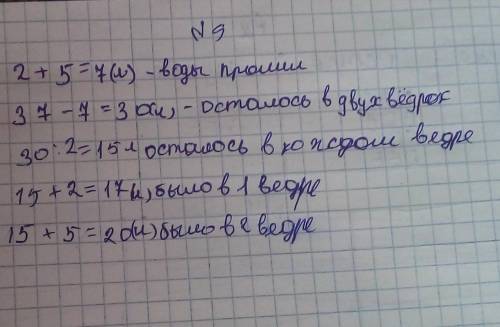 N 9
2 + 5 = 7(л) - воды пролили
37 - 7 = 30(л) - осталось в двух вёдрах
30 : 2 = 15 л осталось в каждом ведре
15 + 2 = 17(л) было в 1 ведре
15 + 5 = 20(л) было в 2 ведре